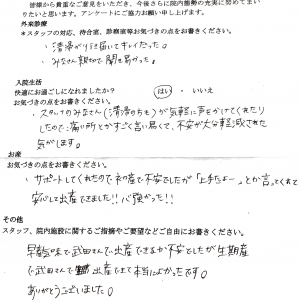 皆様から貴重なご意見をいただき、今後さらに院内態勢の充実に努めてまい
りたいと思います。アンケートにご協力お願い申し上げます。
外来診療
*スタッフの対応、待合室、診察室等お気づきの点をお書きください。
・清潔がゆき届いてキレイだった。
・みなさん親切で聞き易かった。
入院生活
快適にお過ごしになれましたか? はい ・ いいえ
お気づきの点をお書きください。
・スタッフのみなさん(清掃の方も)が気軽に声をかけてくれたり
したので、痛い所とかすごく言い易くて、不安が大分軽減された
気がします。
お産
お気づきの点をお書きください。
・サポートしてくれたので初産で不安でしたが「上手だよー」とか言ってくれて
安心して出産できました!!心強かった!!
その他
スタッフ、院内施設に関するご指摘やご要望などご自由にお書きください。
早産気味で武田さんで出産できるか不安でしたが正期産
で武田さんで出産出来て本当によかったです。
ありがとうございました。